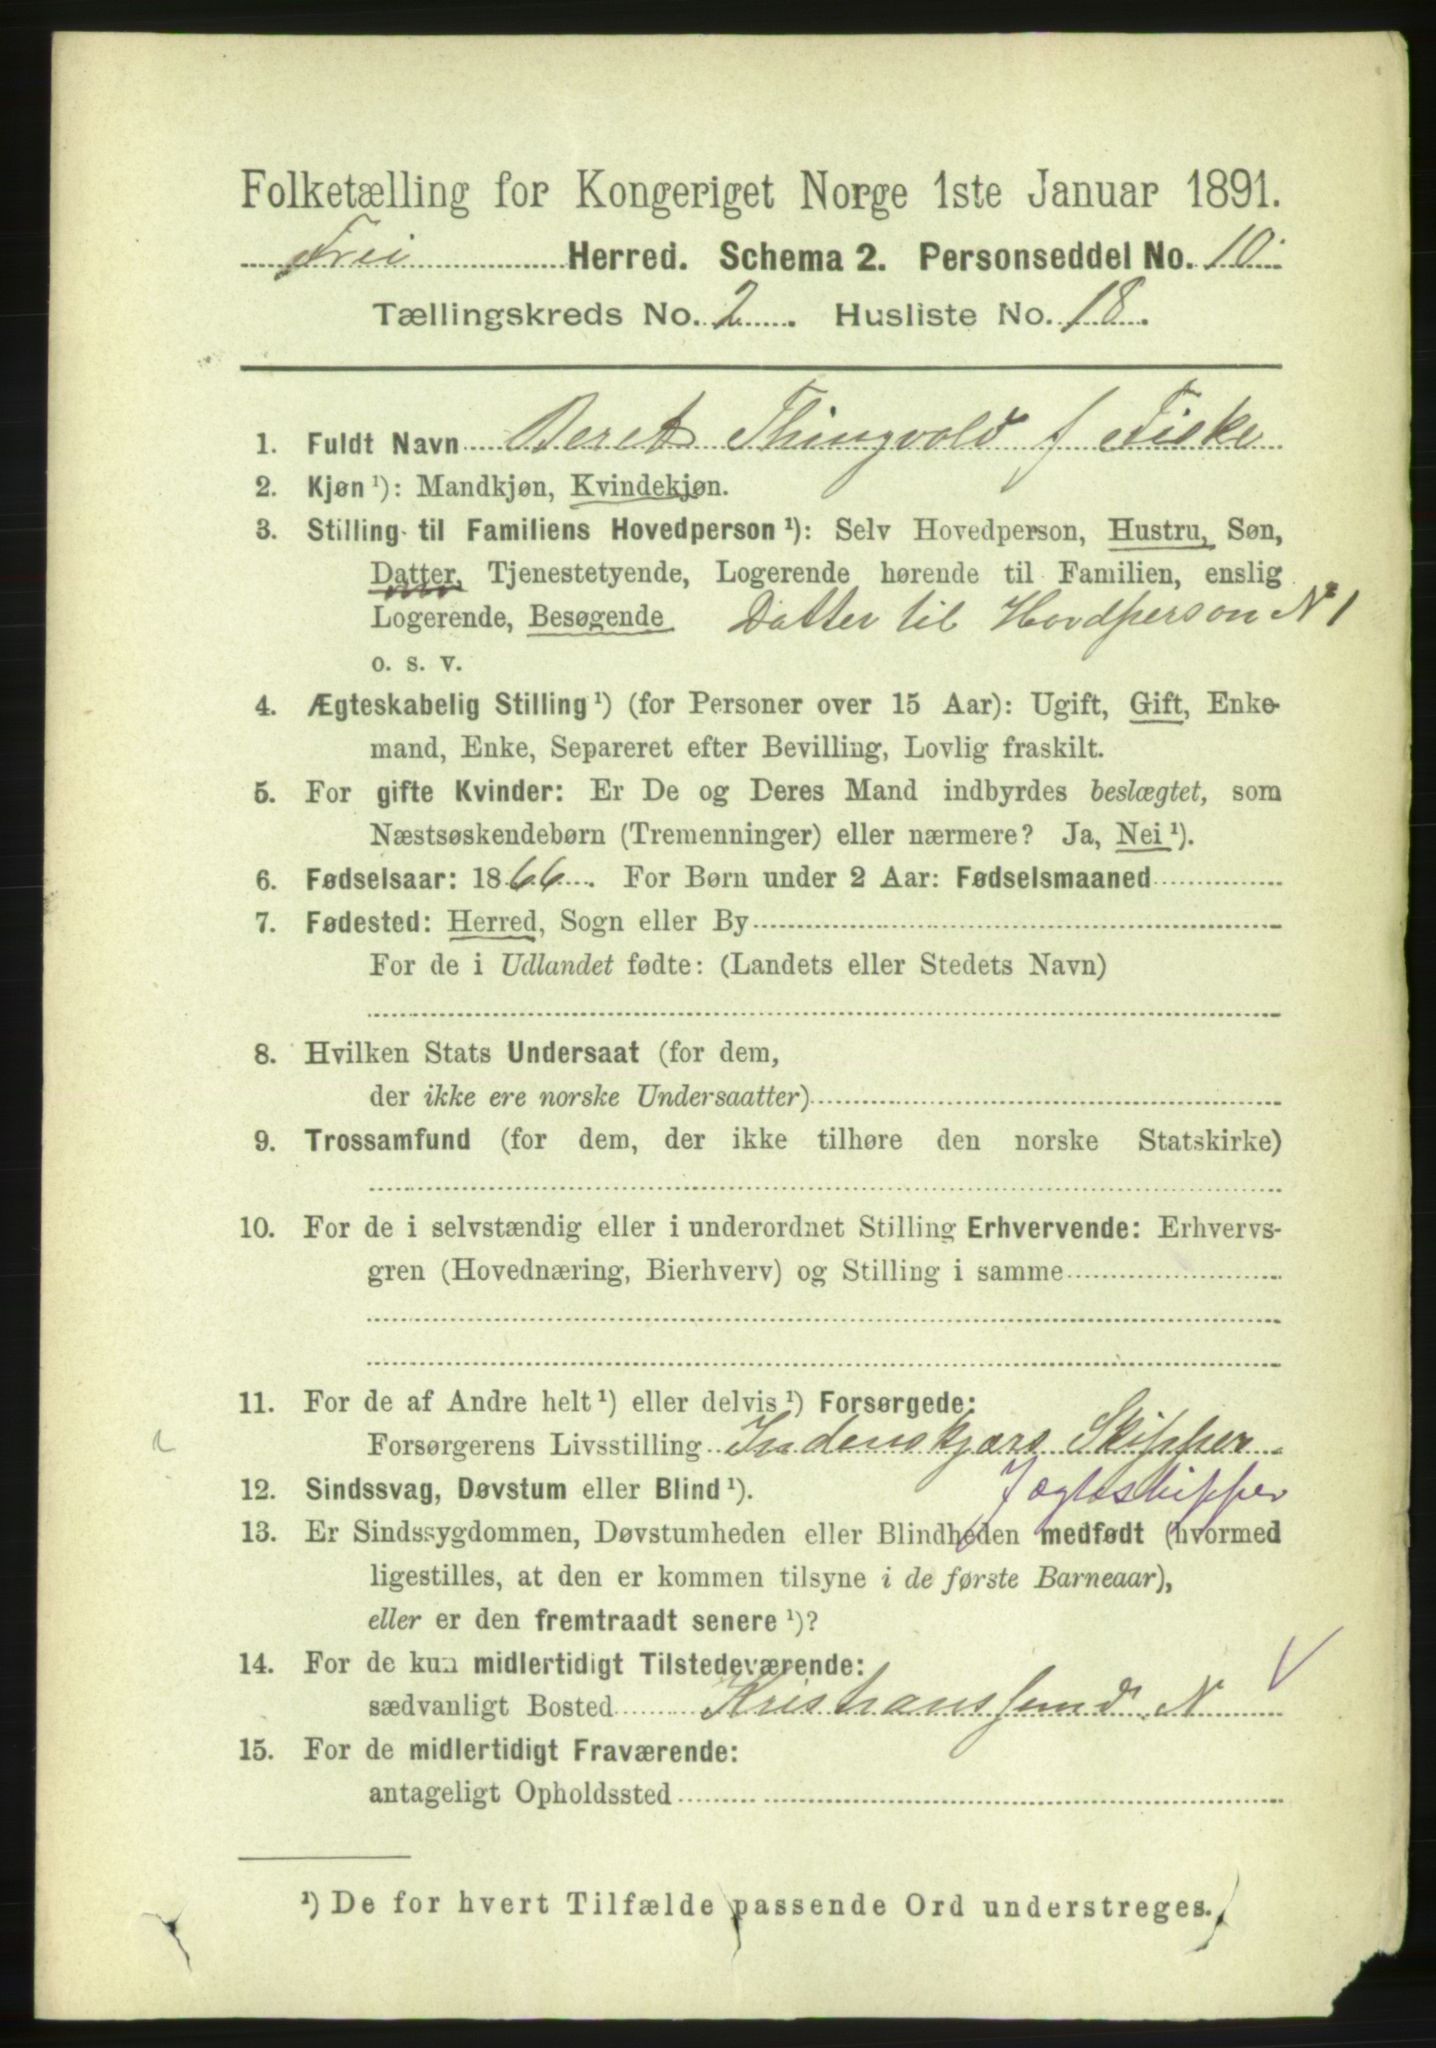 Folketælling for Kongeriget Norge 1ste Januar 1891.
Frei Herred. Schema 2. Personseddel No. 10.
Tællingskreds No. 2. Husliste No. 18.
1. Fuldt Navn Beret Thingvold f Fiske
2. Kjøn ¹): Mandkjøn, Kvindekjøn.
3. Stilling til Familiens Hovedperson ¹): Selv Hovedperson, Hustru, Søn,
Datter, Tjenestetyende, Logerende hørende til Familien, enslig
Logerende, Besøgende Datter til Hovdperson N° 1
o. s. v.
4. Ægteskabelig Stilling ¹) (for Personer over 15 Aar): Ugift, Gift, Enke-
mand, Enke, Separeret efter Bevilling, Lovlig fraskilt.
5. For gifte Kvinder: Er De og Deres Mand indbyrdes beslægtet, som
Næstsøskendebørn (Tremenninger) eller nærmere? Ja, Nei ¹).
6. Fødselsaar: 1866. For Børn under 2 Aar: Fødselsmaaned
7. Fødested: Herred, Sogn eller By
For de i Udlandet fødte: (Landets eller Stedets Navn)
8. Hvilken Stats Undersaat (for dem,
der ikke ere norske Undersaatter)
9. Trossamfund (for dem, der ikke tilhøre den norske Statskirke)
10. For de i selvstændig eller i underordnet Stilling Erhvervende: Erhvervs-
gren (Hovednæring, Bierhverv) og Stilling i samme
11. For de af Andre helt ¹) eller delvis ¹) Forsørgede:
Forsørgerens Livsstilling Indenskjærs Skipper
12. Sindssvag, Døvstum eller Blind ¹). Jægteskipper
13. Er Sindssygdommen, Døvstumheden eller Blindheden medfødt (hvormed
ligestilles, at den er kommen tilsyne i de første Barneaar),
eller er den fremtraadt senere ¹)?
14. For de kun midlertidigt Tilstedeværende:
sædvanligt Bosted Kristianssund N
15. For de midlertidigt Fraværende:
antageligt Opholdssted
¹) De for hvert Tilfælde passende Ord understreges.